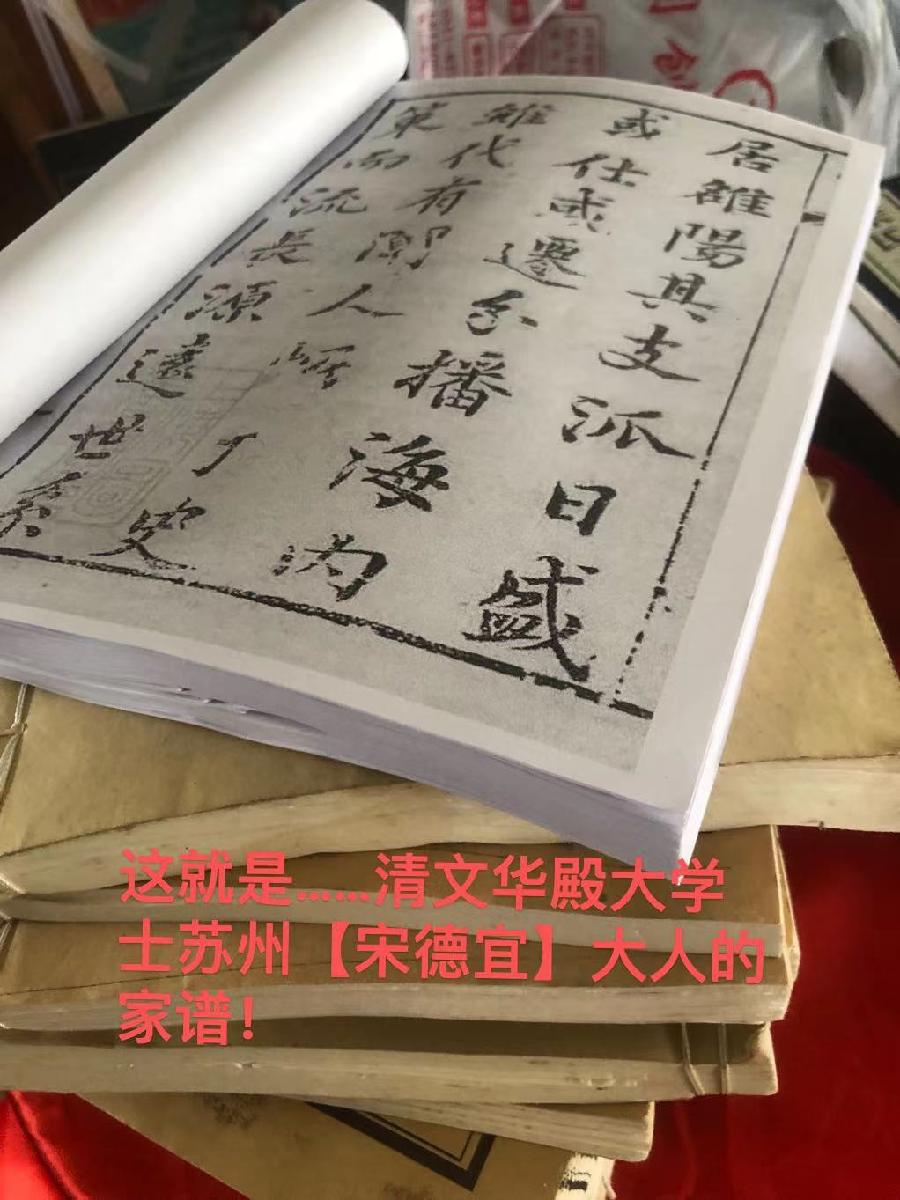 居睢陽其支派日盛
或仕或遷分播海内
雖代有聞人昭于史
策而流長源遠世系
这就是……清文华殿大学
士苏州【宋德宜】大人的
家谱！